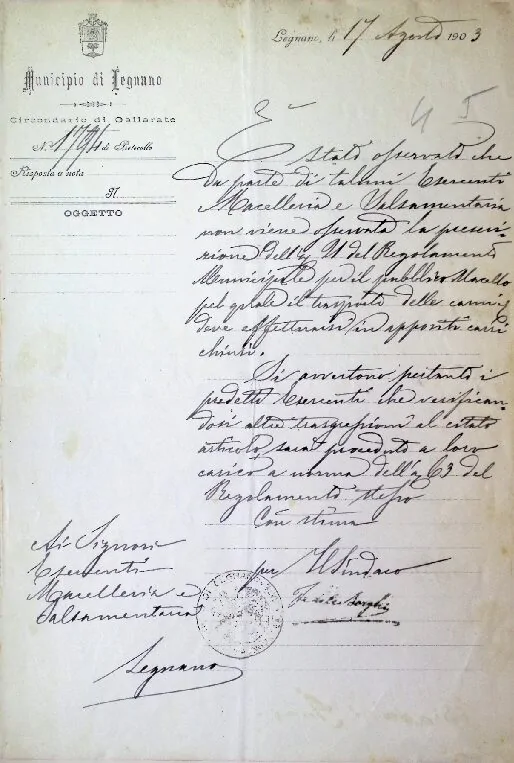 Municipio di Legnano
Circondario di Gallarate
N. 1794 di Protocollo
Risposta a nota
N.
OGGETTO
Legnano, li 17 Agosto 1903
45
È
stato osservato che
da parte di taluni Esercenti
Macelleria e Salsamentaria
non viene osservata la prescri-
zione dell'art. 91 del Regolamento
Municipale per il pubblico Macello
pel quale il trasporto delle carni
deve effettuarsi in appositi carri
chiusi.
Si avvertono pertanto i
predetti Esercenti che verifican-
dosi altre trasgressioni al citato
articolo, sarà proceduto a loro
carico a norma dell'art. 63 del
Regolamento stesso
Con stima
per Il Sindaco
Ai Signori
Esercenti
Macelleria e
Salsamentaria
Legnano